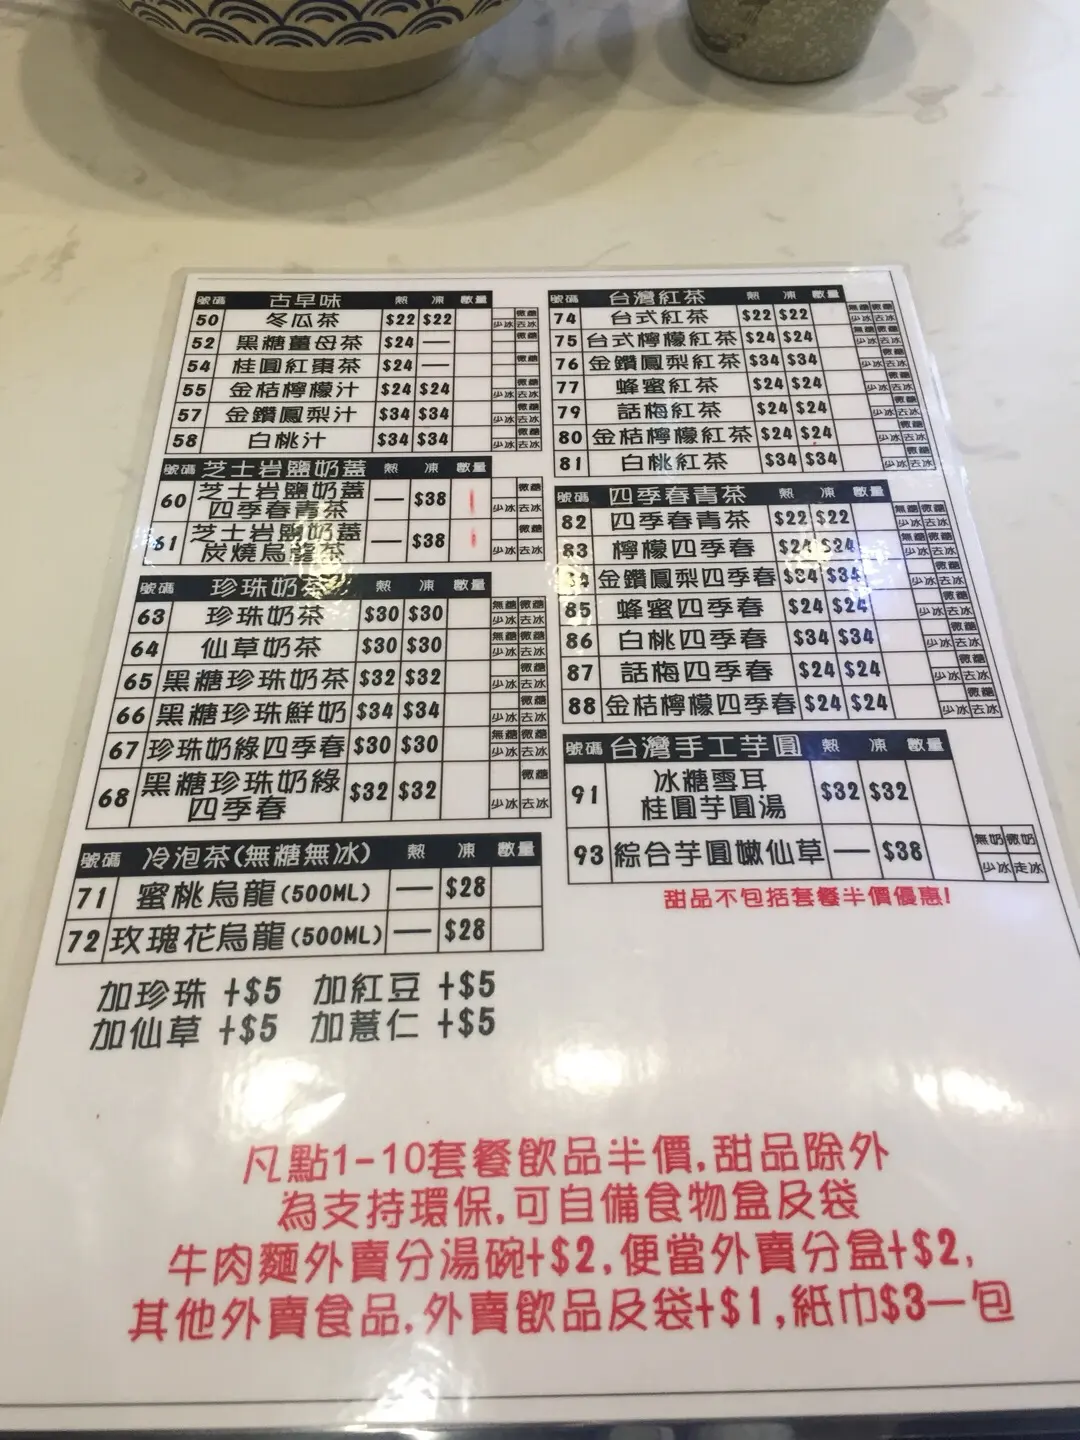 號碼 古早味 熱 凍 數量
50 冬瓜茶 $22 $22 微糖 少冰 去冰
52 黑糖薑母茶 $24 — 微糖
54 桂圓紅棗茶 $24 — 微糖
55 金桔檸檬汁 $24 $24 微糖 少冰 去冰
57 金鑽鳳梨汁 $34 $34 微糖 少冰 去冰
58 白桃汁 $34 $34 微糖 少冰 去冰
號碼 芝士岩鹽奶蓋 熱 凍 數量
60 芝士岩鹽奶蓋
四季春青茶 — $38 微糖 少冰 去冰
61 芝士岩鹽奶蓋
炭燒烏龍茶 — $38 微糖 少冰 去冰
號碼 珍珠奶茶 熱 凍 數量
63 珍珠奶茶 $30 $30 無糖 微糖 少冰 去冰
64 仙草奶茶 $30 $30 無糖 微糖 少冰 去冰
65 黑糖珍珠奶茶 $32 $32 微糖 少冰 去冰
66 黑糖珍珠鮮奶 $34 $34 微糖 少冰 去冰
67 珍珠奶綠四季春 $30 $30 無糖 微糖 少冰 去冰
68 黑糖珍珠奶綠
四季春 $32 $32 微糖 少冰 去冰
號碼 冷泡茶(無糖無冰) 熱 凍 數量
71 蜜桃烏龍(500ML) — $28
72 玫瑰花烏龍(500ML) — $28
加珍珠 +$5 加紅豆 +$5
加仙草 +$5 加薏仁 +$5
號碼 台灣紅茶 熱 凍 數量
74 台式紅茶 $22 $22 無糖 微糖 少冰 去冰
75 台式檸檬紅茶 $24 $24 無糖 微糖 少冰 去冰
76 金鑽鳳梨紅茶 $34 $34 微糖 少冰 去冰
77 蜂蜜紅茶 $24 $24 微糖 少冰 去冰
79 話梅紅茶 $24 $24 微糖 少冰 去冰
80 金桔檸檬紅茶 $24 $24 微糖 少冰 去冰
81 白桃紅茶 $34 $34 微糖 少冰 去冰
號碼 四季春青茶 熱 凍 數量
82 四季春青茶 $22 $22 無糖 微糖 少冰 去冰
83 檸檬四季春 $24 $24 無糖 微糖 少冰 去冰
84 金鑽鳳梨四季春 $34 $34 微糖 少冰 去冰
85 蜂蜜四季春 $24 $24 微糖 少冰 去冰
86 白桃四季春 $34 $34 微糖 少冰 去冰
87 話梅四季春 $24 $24 微糖 少冰 去冰
88 金桔檸檬四季春 $24 $24 微糖 少冰 去冰
號碼 台灣手工芋圓 熱 凍 數量
91 冰糖雪耳
桂圓芋圓湯 $32 $32
93 綜合芋圓嫩仙草 — $38 無奶 微奶 少冰 走冰
甜品不包括套餐半價優惠!
凡點1-10套餐飲品半價,甜品除外
為支持環保,可自備食物盒及袋
牛肉麵外賣分湯碗+$2,便當外賣分盒+$2,
其他外賣食品,外賣飲品及袋+$1,紙巾$3一包